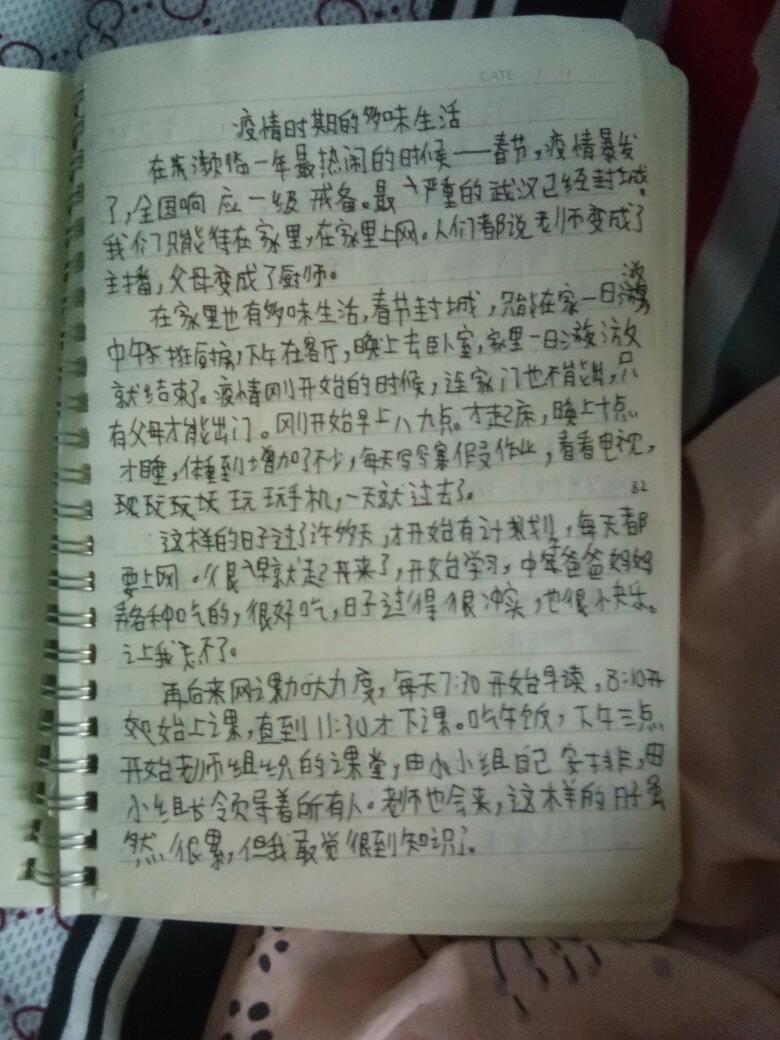 DATE / /
疫情时期的多味生活
在濒临一年最热闹的时候——春节,疫情暴发
了,全国响应一级戒备。最严重的武汉已经封城。
我们只能待在家里,在家里上网。人们都说老师变成了
主播,父母变成了厨师。
在家里也有多味生活,春节封城,只能在家一日游
中午在厨房,下午在客厅,晚上去卧室,家里一日游
就结束了。疫情刚开始的时候,连家门也不能出,只
有父母才能出门。刚开始早上八九点才起床,晚上十点
才睡,体重到增加了不少,每天写写寒假作业,看看电视,
玩玩手机,一天就过去了。
这样的日子过了许多天,才开始有计划,每天都
要上网。很早就起来了,开始学习,中午爸爸妈妈
弄各种吃的,很好吃,日子过得很冲实,也很快乐。
让我忘不了。
再后来网课加大力度,每天7:30开始早读,8:10开
始上课,直到11:30才下课。吃午饭,下午三点
开始老师组织的课堂,由小组自己安排,由
小组长领导着所有人。老师也会来,这样的日子虽
然很累,但我感觉很到知识了。